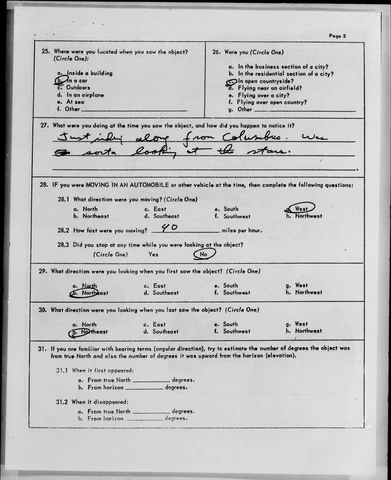 Page 5
25. Where were you located when you saw the object?
(Circle One):
a. Inside a building
b. In a car
c. Outdoors
d. In an airplane
e. At sea
f. Other
26. Were you (Circle One)
a. In the business section of a city?
b. In the residential section of a city?
c. In open countryside?
d. Flying near an airfield?
e. Flying over a city?
f. Flying over open country?
g. Other
27. What were you doing at the time you saw the object, and how did you happen to notice it?
Just riding along from Columbus. Was
sorta looking at the stars.
28. IF you were MOVING IN AN AUTOMOBILE or other vehicle at the time, then complete the following questions:
28.1 What direction were you moving? (Circle One)
a. North c. East e. South g. West
b. Northeast d. Southeast f. Southwest h. Northwest
28.2 How fast were you moving? 40 miles per hour.
28.3 Did you stop at any time while you were looking at the object?
(Circle One) Yes No
29. What direction were you looking when you first saw the object? (Circle One)
a. North c. East e. South g. West
b. Northeast d. Southeast f. Southwest h. Northwest
30. What direction were you looking when you last saw the object? (Circle One)
a. North c. East e. South g. West
b. Northeast d. Southeast f. Southwest h. Northwest
31. If you are familiar with bearing terms (angular direction), try to estimate the number of degrees the object was
from true North and also the number of degrees it was upward from the horizon (elevation).
31.1 When it first appeared:
a. From true North degrees.
b. From horizon degrees.
31.2 When it disappeared:
a. From true North degrees.
b. From horizon degrees.